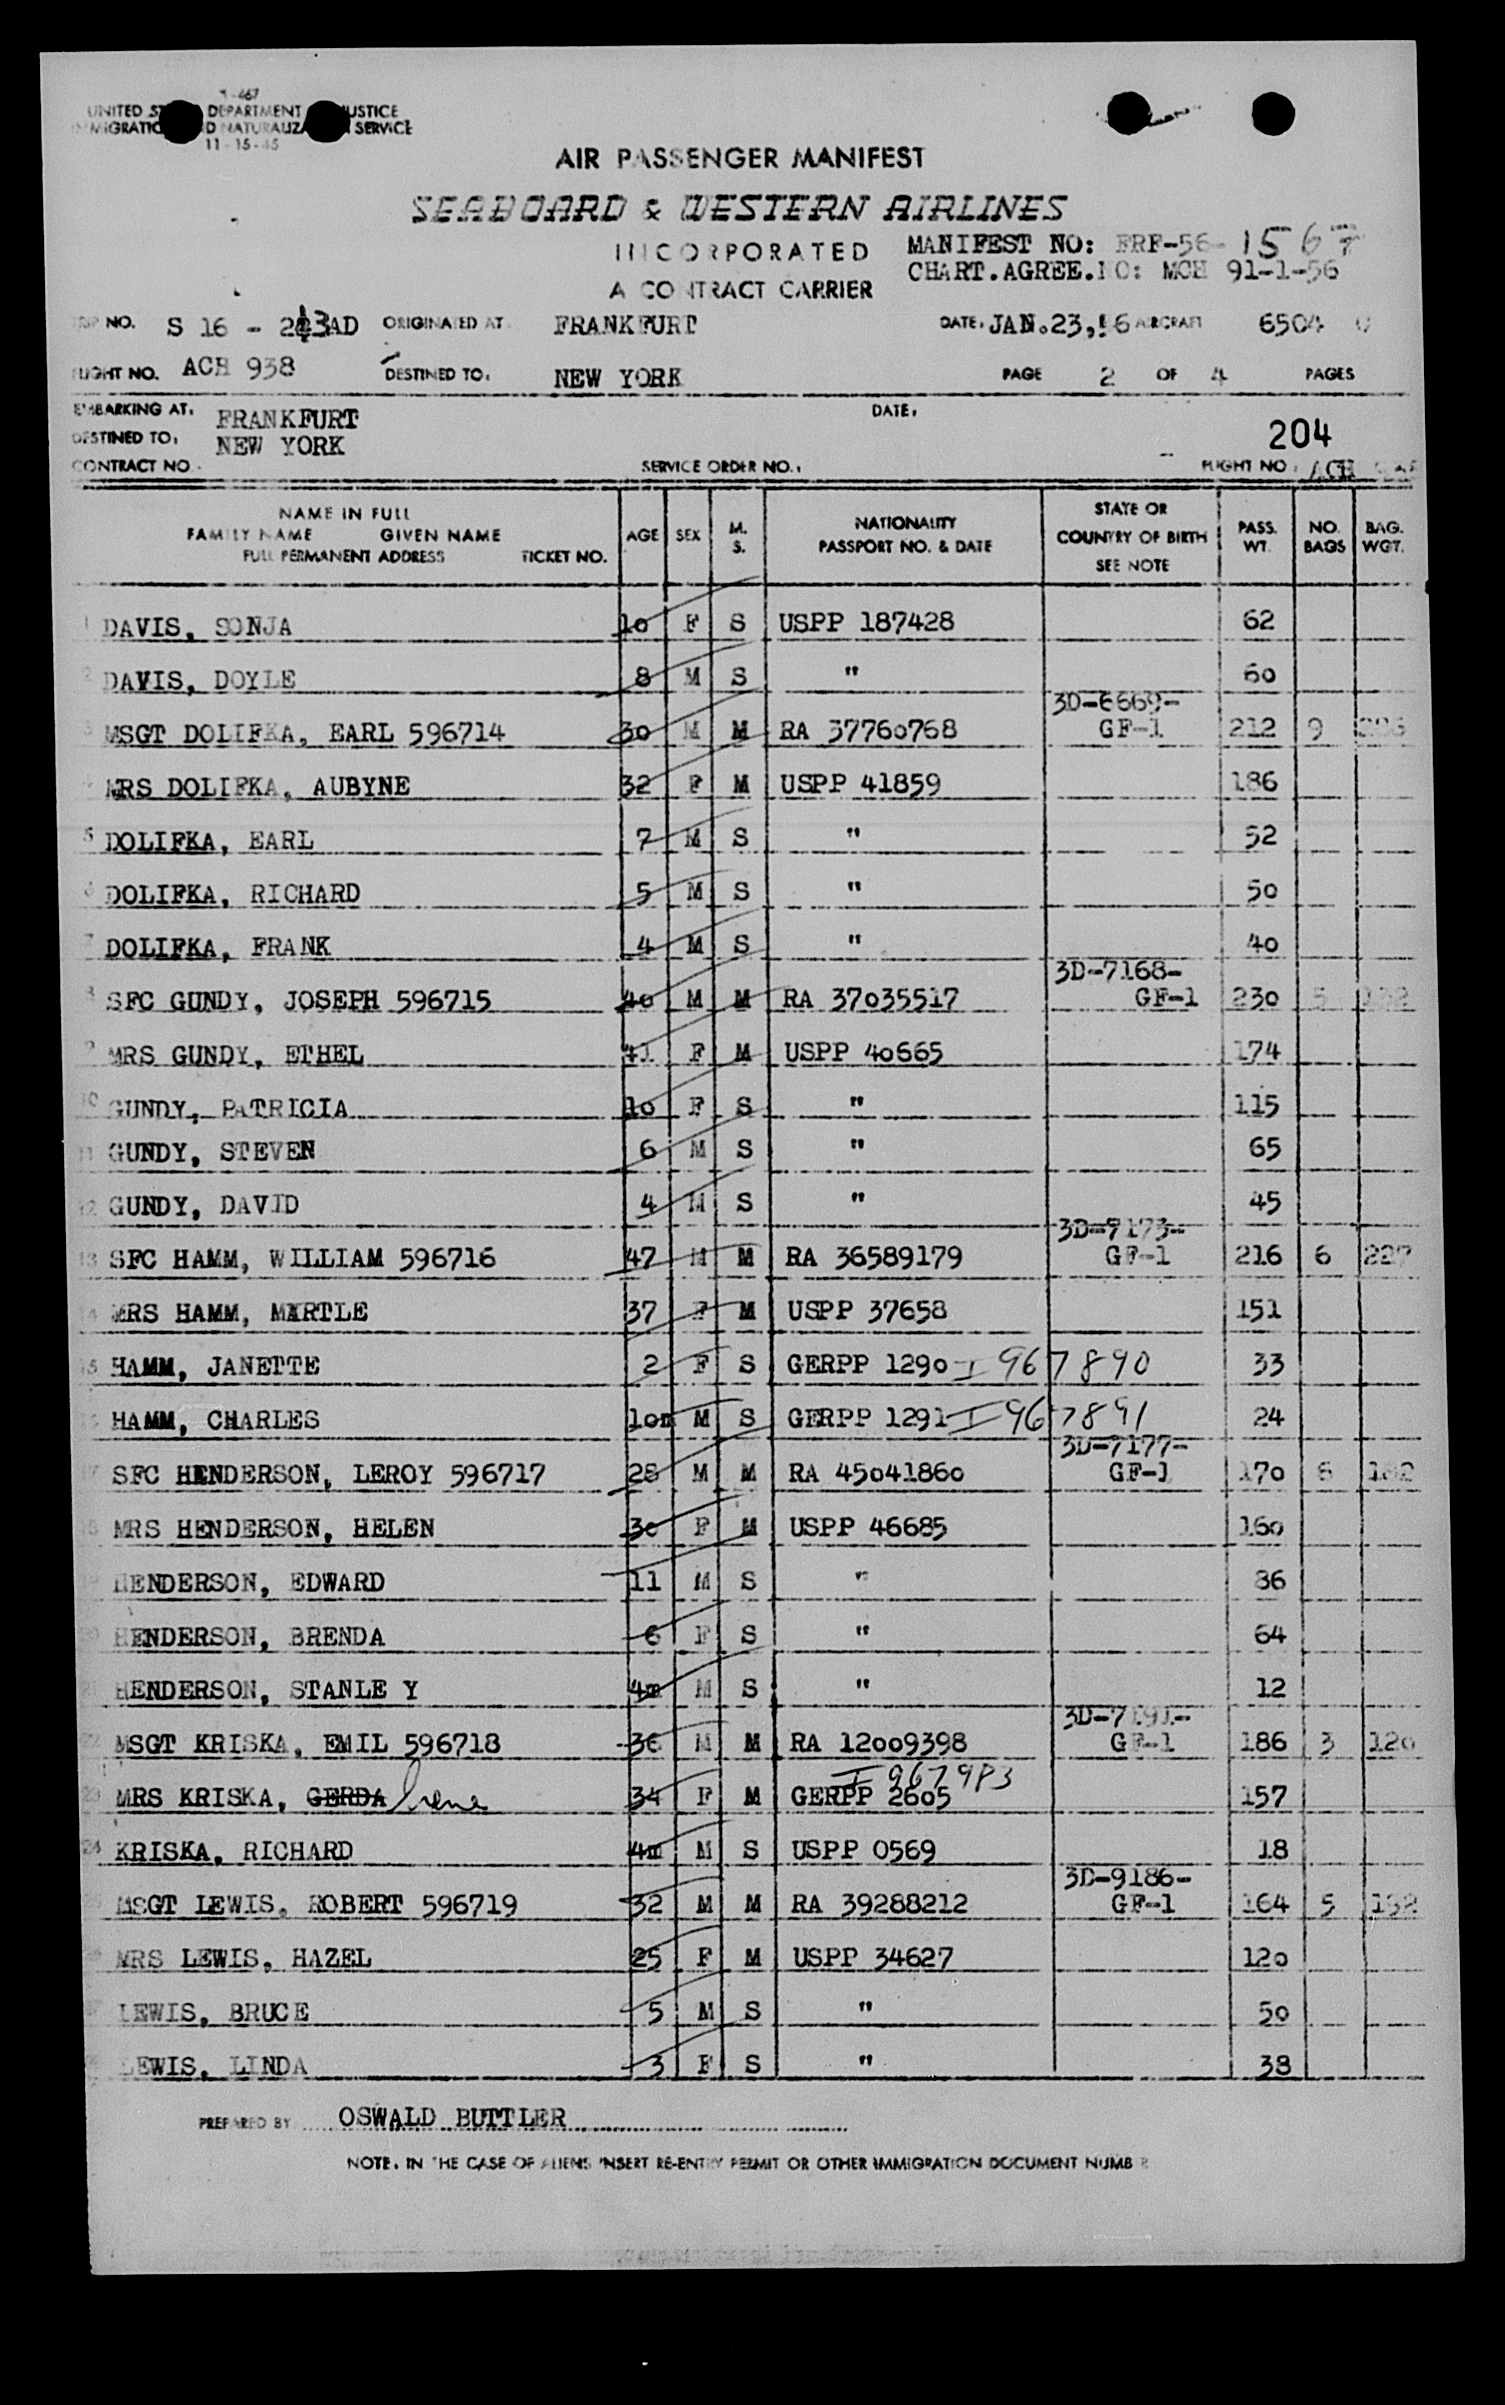 I-467
UNITED STATES DEPARTMENT OF JUSTICE
IMMIGRATION AND NATURALIZATION SERVICE
11-15-45
AIR PASSENGER MANIFEST
SEABOARD & WESTERN AIRLINES
INCORPORATED
MANIFEST NO: FRF-56-1567
CHART.AGREE.NO: MCH 91-1-56
A CONTRACT CARRIER
TRIP NO. S 16 - 243AD ORIGINATED AT. FRANKFURT DATE. JAN.23,56 AIRCRAFT 6504
FLIGHT NO. ACH 938 DESTINED TO. NEW YORK PAGE 2 OF 4 PAGES
EMBARKING AT. FRANKFURT DATE.
DESTINED TO. NEW YORK 204
CONTRACT NO. SERVICE ORDER NO. FLIGHT NO. ACH
NAME IN FULL
FAMILY NAME GIVEN NAME
FULL PERMANENT ADDRESS TICKET NO. AGE SEX M. S. NATIONALITY PASSPORT NO. & DATE STATE OR COUNTRY OF BIRTH SEE NOTE PASS. WT. NO. BAGS BAG. WGT.
1 DAVIS, SONJA 10 F S USPP 187428 62
2 DAVIS, DOYLE 8 M S " 60
3 MSGT DOLIFKA, EARL 596714 30 M M RA 37760768 3D-6669-GF-1 212 9
4 MRS DOLIFKA, AUBYNE 32 F M USPP 41859 186
5 DOLIFKA, EARL 7 M S " 52
6 DOLIFKA, RICHARD 5 M S " 50
7 DOLIFKA, FRANK 4 M S " 40
8 SFC GUNDY, JOSEPH 596715 40 M M RA 37035517 3D-7168-GF-1 230 5 132
9 MRS GUNDY, ETHEL 41 F M USPP 40665 174
10 GUNDY, PATRICIA 10 F S " 115
11 GUNDY, STEVEN 6 M S " 65
12 GUNDY, DAVID 4 M S " 45
13 SFC HAMM, WILLIAM 596716 47 M M RA 36589179 3D-7173-GF-1 216 6 227
14 MRS HAMM, MYRTLE 37 F M USPP 37658 151
15 HAMM, JANETTE 2 F S GERPP 1290 I 967890 33
16 HAMM, CHARLES 10m M S GERPP 1291 I 967891 24
17 SFC HENDERSON, LEROY 596717 28 M M RA 45041860 3D-7177-GF-1 170 6 182
18 MRS HENDERSON, HELEN 30 F M USPP 46685 160
19 HENDERSON, EDWARD 11 M S " 86
20 HENDERSON, BRENDA 6 F S " 64
21 HENDERSON, STANLE Y 4m M S " 12
22 MSGT KRISKA, EMIL 596718 36 M M RA 12009398 3D-7191-GF-1 186 3 120
23 MRS KRISKA, GERDA Irene 34 F M GERPP 2605 I 967993 157
24 KRISKA, RICHARD 4m M S USPP 0569 18
25 MSGT LEWIS, ROBERT 596719 32 M M RA 39288212 3D-9186-GF-1 164 5 192
26 MRS LEWIS, HAZEL 25 F M USPP 34627 120
27 LEWIS, BRUCE 5 M S " 50
28 LEWIS, LINDA 3 F S " 38
PREPARED BY OSWALD BUTTLER
NOTE. IN THE CASE OF ALIENS INSERT RE-ENTRY PERMIT OR OTHER IMMIGRATION DOCUMENT NUMBER